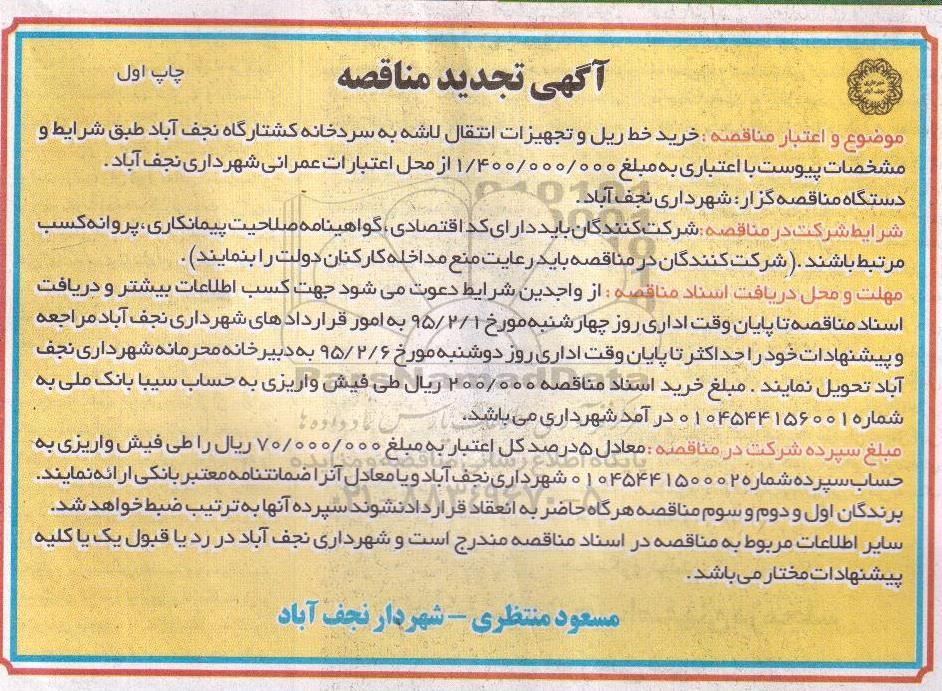 آگهی تجدید مناقصه
چاپ اول
شهرداری
نجف آباد
موضوع و اعتبار مناقصه : خرید خط ریل و تجهیزات انتقال لاشه به سردخانه کشتارگاه نجف آباد طبق شرایط و
مشخصات پیوست با اعتباری به مبلغ ۱/۴۰۰/۰۰۰/۰۰۰ از محل اعتبارات عمرانی شهرداری نجف آباد.
دستگاه مناقصه گزار: شهرداری نجف آباد.
شرایط شرکت در مناقصه: شرکت کنندگان باید دارای کد اقتصادی، گواهینامه صلاحیت پیمانکاری، پروانه کسب
مرتبط باشند. (شرکت کنندگان در مناقصه باید رعایت منع مداخله کارکنان دولت را بنمایند).
مهلت و محل دریافت اسناد مناقصه : از واجدین شرایط دعوت می شود جهت کسب اطلاعات بیشتر و دریافت
اسناد مناقصه تا پایان وقت اداری روز چهارشنبه مورخ ۹۵/۲/۱ به امور قراردادهای شهرداری نجف آباد مراجعه
و پیشنهادات خود را حداکثر تا پایان وقت اداری روز دوشنبه مورخ ۹۵/۲/۶ به دبیرخانه محرمانه شهرداری نجف
آباد تحویل نمایند . مبلغ خرید اسناد مناقصه ۲۰۰/۰۰۰ ریال طی فیش واریزی به حساب سیبا بانک ملی به
شماره ۰۱۰۴۵۴۴۱۵۶۰۰۱ در آمد شهرداری می باشد.
مبلغ سپرده شرکت در مناقصه : معادل ۵ درصد کل اعتبار به مبلغ ۷۰/۰۰۰/۰۰۰ ریال را طی فیش واریزی به
حساب سپرده شماره ۰۱۰۴۵۴۴۱۵۰۰۰۲ شهرداری نجف آباد و یا معادل آنرا ضمانتنامه معتبر بانکی ارائه نمایند.
برندگان اول و دوم و سوم مناقصه هرگاه حاضر به انعقاد قرارداد نشوند سپرده آنها به ترتیب ضبط خواهد شد.
سایر اطلاعات مربوط به مناقصه در اسناد مناقصه مندرج است و شهرداری نجف آباد در رد یا قبول یک یا کلیه
پیشنهادات مختار می باشد.
مسعود منتظری – شهردار نجف آباد
ParsNamadData
پایگاه اطلاع رسانی مناقصه و مزایده
۰۲۱-۸۸۳۴۹۶۷۰-۵